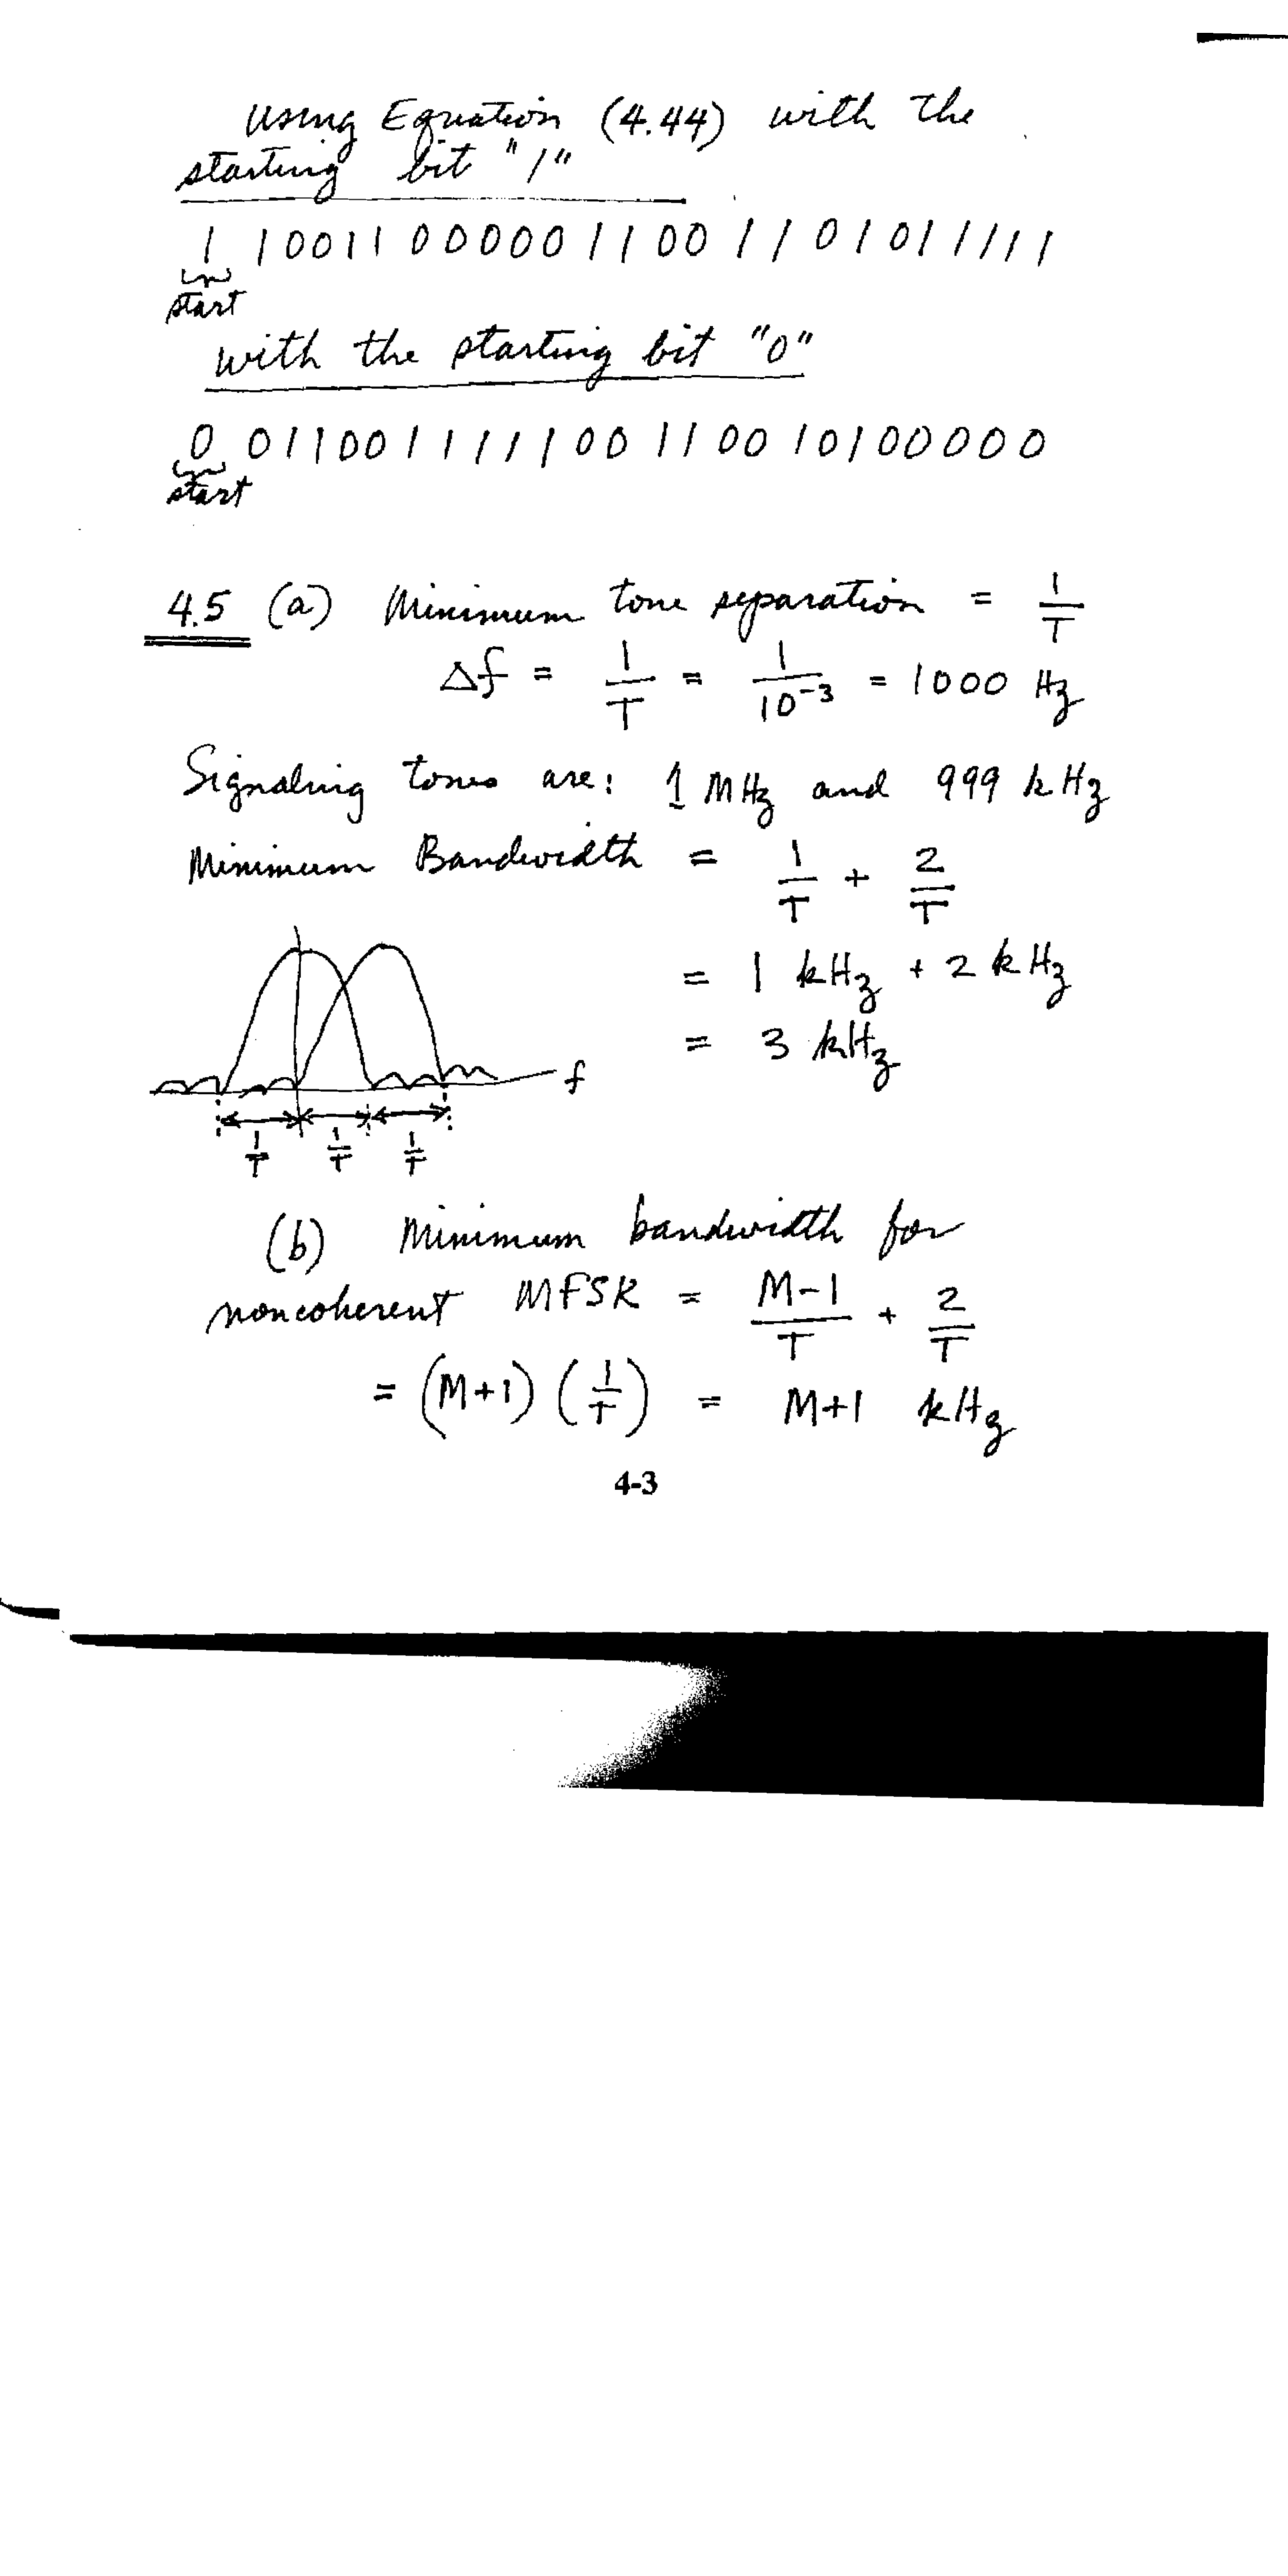 using Equation (4.44) with the
starting bit "1"
1 100110000011001101011111
start
with the starting bit "0"
0 011001111100110010100000
start
4.5 (a) Minimum tone separation = 1/T
Δf = 1/T = 1/10⁻³ = 1000 Hz
Signaling tones are: 1 MHz and 999 kHz
Minimum Bandwidth = 1/T + 2/T
= 1 kHz + 2 kHz
= 3 kHz
f
1/T 1/T 1/T
(b) Minimum bandwidth for
noncoherent MFSK = M-1/T + 2/T
= (M+1) (1/T) = M+1 kHz
4-3